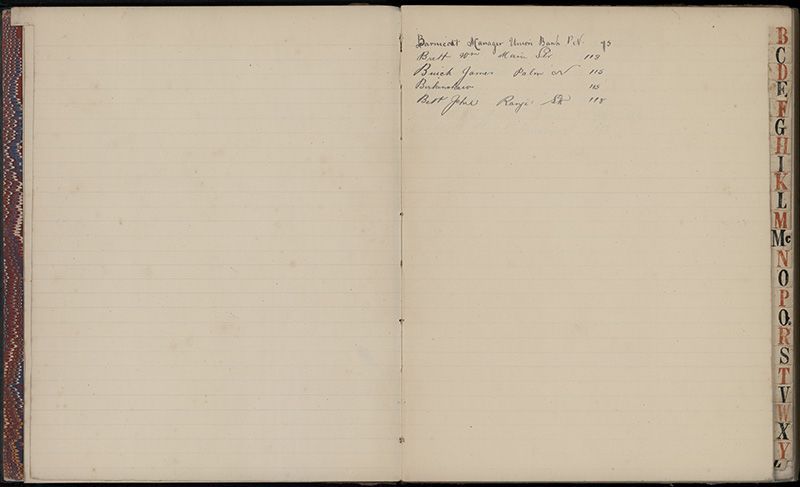 Barnicoat Manager Union Bank P.N. 95
Brett Wm Main Str 113
Buick James Palm N 115
Burkinshaw 115
Bett John Rangi St 118
B
C
D
E
F
G
H
I
K
L
M
Mc
N
O
P
Q
R
S
T
V
W
X
Y